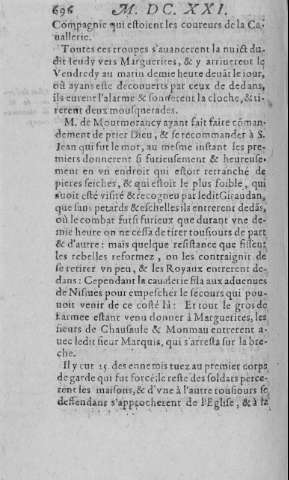 696 M. DC. XXI.
Compagnie qui estoient les coureurs de la Ca-
uallerie.
Toutes ces troupes s'auancerent la nuict du-
dit Ieudy vers Marguerites, & y arriuerent le
Vendredy au matin demie heure deuãt le iour,
où ayants esté descouuerts par ceux de dedans,
ils eurent l'alarme & sonnerent la cloche, & ti-
rerent deux mousquetades.
M. de Montmorancy ayant fait faire cõman-
dement de prier Dieu, & se recommander à S.
Iean qui fut le mot, au mesme instant les pre-
miers donnerent si furieusement & heureuse-
ment en vn endroit qui estoit retranché de
pierres seiches, & qui estoit le plus foible, qui
auoit esté visité & recogneu par ledit Giraudan,
que sans petards & eschelles ils entrerent dedãs,
où le combat fut si furieux que durant vne de-
mie heure on ne cessa de tirer tousiours de part
& d'autre: mais quelque resistance que fissent
les rebelles reformez, on les contraignit de
se retirer vn peu, & les Royaux entrerent de-
dans: Cependant la cauderie fila aux aduenues
de Nismes pour empescher le secours qui pou-
uoit venir de ce costé là: Et tout le gros de
l'armee estant venu donner à Marguerites, les
sieurs de Chausaule & Monmau entrerent a-
uec ledit sieur Marquis, qui s'arresta sur la bre-
che.
Il y eut 25. des ennemis tuez au premier corps
de garde qui fut forcé: le reste des soldats perce-
rent les maisons, & d'vne à l'autre tousiours se
deffendans s'approcherent de l'Eglise, & à la